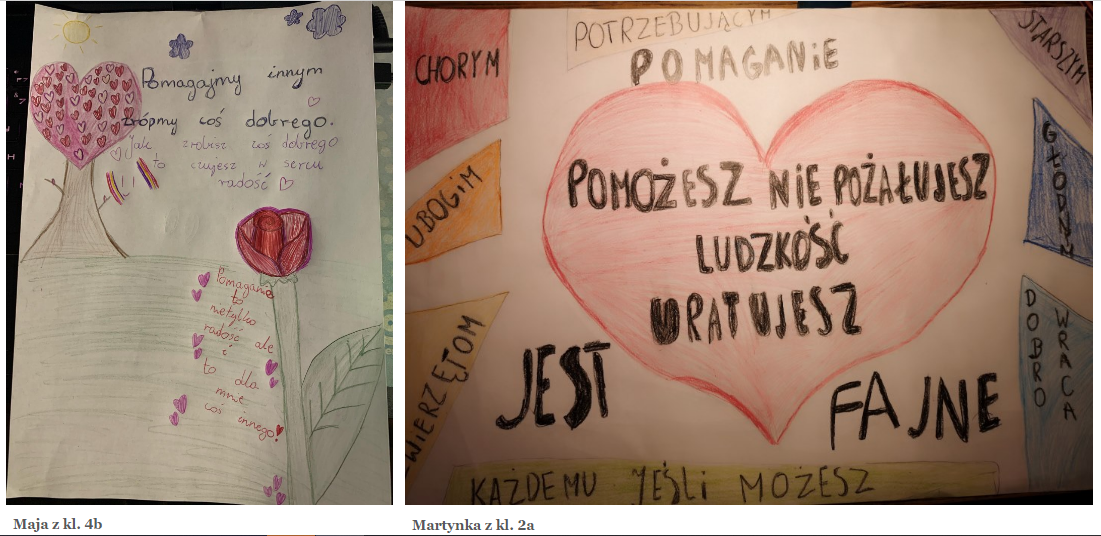 Pomagajmy innym
zrópmy coś dobrego.
Jak zrobisz coś dobrego
to czujesz w sercu
radość
Pomaganie
to
nietylko
radość ale
i
to dla
mnie
coś innego!
Maja z kl. 4b
POTRZEBUJĄCYM
CHORYM
STARSZYM
POMAGANiE
UBOGiM
GŁODNYM
POMOŻESZ NiE POŻAŁUJESZ
LUDZKOŚĆ
URATUJESZ
ZWiERZĘTOM
DOBRO
WRACA
JEST
FAJNE
KAŻDEMU JEŚLi MOŻESZ
Martynka z kl. 2a